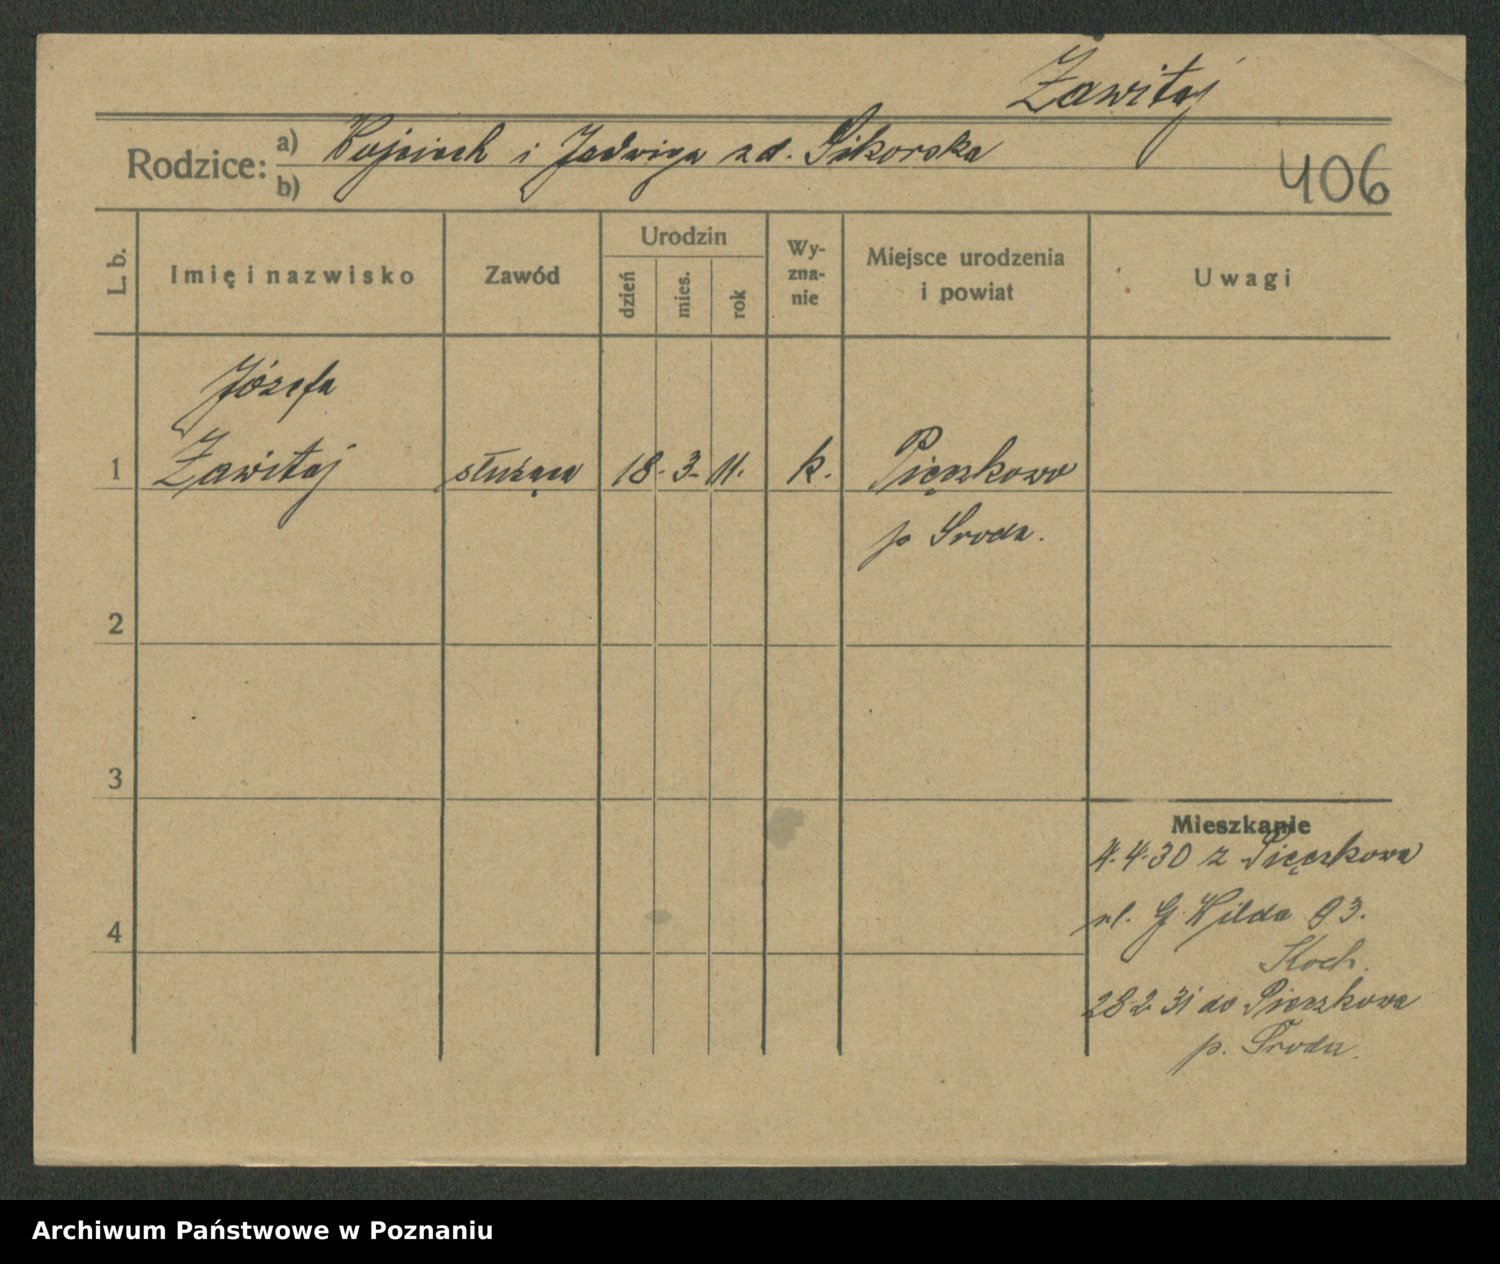 Zawitaj
Rodzice: a) Wojciech i Jadwiga zd. Sikorska
b)
406
L. b.
Imię i nazwisko
Zawód
Urodzin
dzień
mies.
rok
Wy-
zna-
nie
Miejsce urodzenia
i powiat
Uwagi
Józefa
1 Zawitaj służąca 18. 3. 11. k. Pięczkowo
p Sroda.
2
3
4
Mieszkanie
4.4.30 z Pięczkowa
ul. G. Wilda 93.
Koch.
28 2 31 do Pięczkowa
p. Środa.
Archiwum Państwowe w Poznaniu